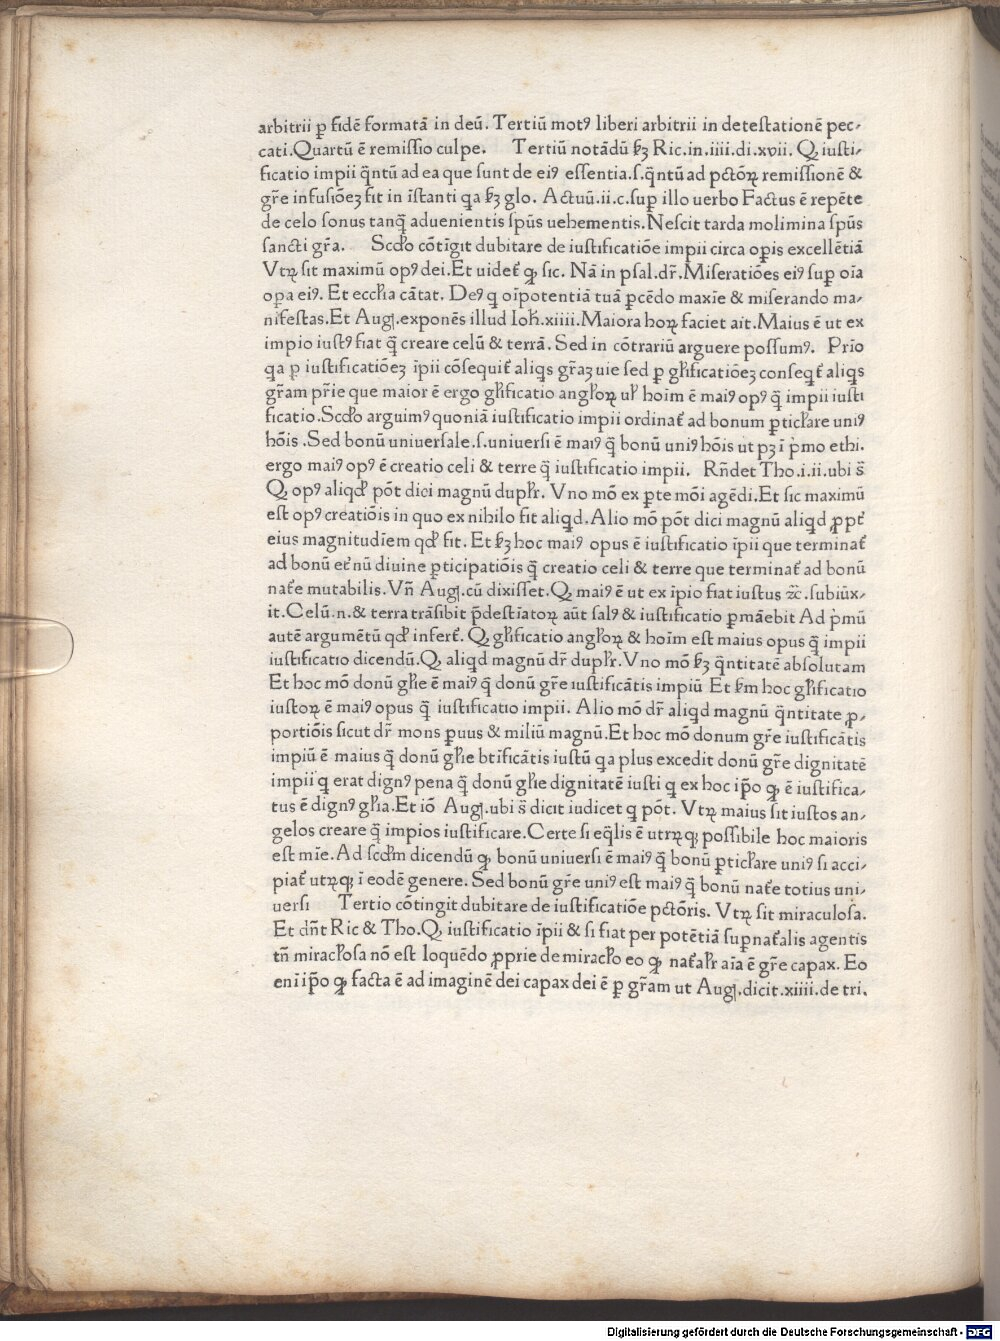 arbitrii ꝑ fidē formatā in deū. Tertiū motꝰ liberi arbitrii in detestationē pec-
cati. Quartū ē remissio culpe. Tertiū notādū ẜꝫ Ric. in .iiii. di. xvii. Ꝙ iusti-
ficatio impii q̄ntū ad ea que sunt de eiꝰ essentia .s. q̄ntū ad pctōꝝ remissionē &
gr̄e infusiōeꝫ fit in īstanti qa ẜꝫ glo. Actuū .ii. c. suꝑ illo uerbo Factus ē repēte
de celo sonus tanq̄ aduenientis sp̄us uehementis. Nescit tarda molimina sp̄us
sancti gr̄a. Scd̓o cōtīgit dubitare de iustificatiōe impii circa oꝑis excellētiā
Vtꝝ sit maximū opꝰ dei. Et uidet̓ ꝙ sic. Nā in psal. dr̄. Miseratiōes eiꝰ suꝑ oīa
oꝑa eiꝰ. Et eccl̓ia cātat. Deꝰ q oīpotentiā tuā ꝑcēdo maxīe & miserando ma-
nifestas. Et Aug. exponēs illud Ioh̄. xiiii. Maiora hoꝝ faciet ait. Maius ē ut ex
impio iustꝰ fiat q̄ creare celū & terrā. Sed in cōtrariū arguere possumꝰ. Prīo
qa ꝑ iustificatiōeꝫ īpii cōsequit̓ aliqs gr̄aꝫ uie sed ꝑ gl̓ificatiōeꝫ conseqt̓ aliqs
gr̄am pr̄ie que maior ē ergo gl̓ificatio angl̓oꝝ ul̓ hoīm ē maiꝰ opꝰ q̄ impii iusti
ficatio. Scd̓o arguimꝰ quoniā iustificatio impii ordinat̓ ad bonum ꝑticl̓are uniꝰ
hōis. Sed bonū uniuersale .s. uniuersi ē maiꝰ q̄ bonū uniꝰ hōis ut pꝫ ī p̓mo ethi.
ergo maiꝰ opꝰ ē creatio celi & terre q̄ iustificatio impii. Rn̄det Tho. i. ii. ubi s̄
Ꝙ opꝰ aliqd̓ pōt dici magnū dupl̓r. Vno mō ex ꝑte mōi agēdi. Et sic maximū
est opꝰ creatiōis in quo ex nihilo fit aliqd. Alio mō pōt dici magnū aliqd ꝓpt̓
eius magnitudīem qd̓ fit. Et ẜꝫ hoc maiꝰ opus ē iustificatio īpii que terminat̓
ad bonū et̓nū diuine ꝑticipatiōis q̄ creatio celi & terre que terminat̓ ad bonū
nat̓e mutabilis. Vn̄ Aug. cū dixisset. Ꝙ maiꝰ ē ut ex īpio fiat iustus ⁊c̄. subiūx-
it. Celū .n. & terra trāsibit p̄destīatoꝝ aūt salꝰ & iustificatio ꝑmāebit Ad p̓mū
autē argumētū qd̓ infert̓. Ꝙ gl̓ificatio angl̓oꝝ & hoīm est maius opus q̄ impii
iustificatio dicendū. Ꝙ aliqd magnū dr̄ dupl̓r. Vno mō ẜꝫ q̄ntitatē absolutam
Et hoc mō donū gl̓ie ē maiꝰ q̄ donū gr̄e iustificātis impiū Et ẜm hoc gl̓ificatio
iustoꝝ ē maiꝰ opus q̄ iustificatio impii. Alio mō dr̄ aliqd magnū q̄ntitate ꝓ-
portiōis sicut dr̄ mons ꝑuus & miliū magnū. Et hoc mō donum gr̄e iustificātis
impiū ē maius q̄ donū gl̓ie btīficātis iustū qa plus excedit donū gr̄e dignitatē
impii q erat dignꝰ pena q̄ donū gl̓ie dignitatē iusti q ex hoc ip̄o ꝙ ē iustifica-
tus ē dignꝰ gl̓ia. Et iō Aug. ubi s̄ dicit iudicet q pōt. Vtꝝ maius sit iustos an-
gelos creare q̄ impios iustificare. Certe si eq̄lis ē utrꝝqꝫ possibile hoc maioris
est mīe. Ad scd̓m dicendū ꝙ bonū uniuersi ē maiꝰ q̄ bonū ꝑticl̓are uniꝰ si acci-
piat̓ utrꝝqꝫ ī eodē genere. Sed bonū gr̄e uniꝰ est maiꝰ q̄ bonū nat̓e totius uni-
uersi Tertio cōtingit dubitare de iustificatiōe pctōris. Vtꝝ sit miraculosa.
Et dn̄t Ric & Tho. Ꝙ iustificatio īpii & si fiat per potētiā suꝑnat̓alis agentis
tn̄ miracl̓osa nō est loquēdo ꝓprie de miracl̓o eo ꝙ nat̓al̓r aīa ē gr̄e capax. Eo
eni ip̄o ꝙ facta ē ad imaginē dei capax dei ē ꝑ gr̄am ut Aug. dicit .xiiii. de tri.
Digitalisierung gefördert durch die Deutsche Forschungsgemeinschaft - DFG